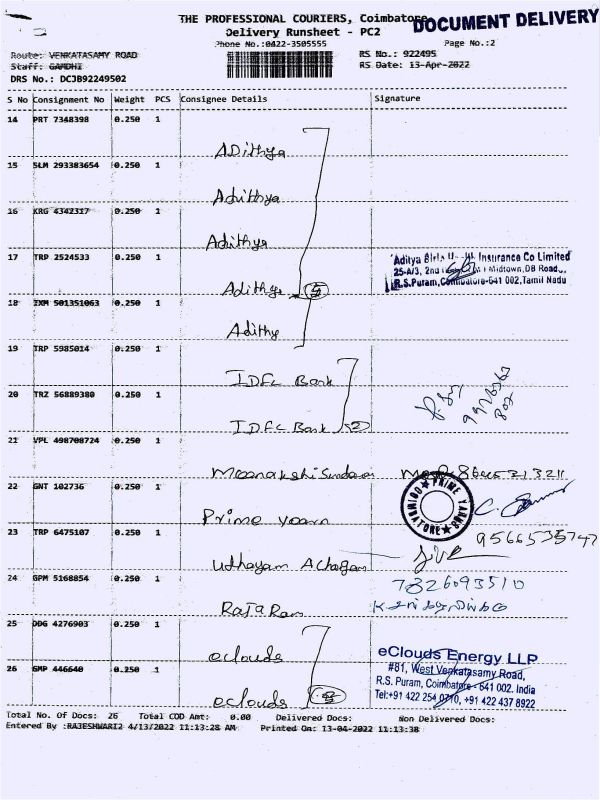 THE PROFESSIONAL COURIERS, Coimbatore
DOCUMENT DELIVERY
Delivery Runsheet - PC2
Phone No.:0422-3505555
Page No.:2
Route: VENKATASAMY ROAD
RS No.: 922495
Staff: GANDHI
RS Date: 13-Apr-2022
DRS No.: DCJB92249502
S No Consignment No Weight PCS Consignee Details Signature
14 PRT 7348398 0.250 1
Adithya
15 SLM 293383654 0.250 1
Adithya
16 KRG 4342317 0.250 1
Adithya
17 TRP 2524533 0.250 1
Aditya Birla Insurance Co Limited
25-A/3, 2nd Midtown, DB Road,
R.S.Puram, Coimbatore-641 002, Tamil Nadu
Adithya 5
18 IXM 501351063 0.250 1
Adithy
19 TRP 5985014 0.250 1
IDFC Bank
20 TRZ 56889380 0.250 1
IDFC Bank 2
21 VPL 498708724 0.250 1
Meenakshi Sundaram
22 GNT 102736 0.250 1
PRIME YARNS COIMBATORE
Prime yaarn
23 TRP 6475107 0.250 1
9566535747
Udhayam
24 GPM 5168854 0.250 1
7326093510
Raja Ram
25 ODG 4276903 0.250 1
eclouds
eClouds Energy LLP
#81, West Venkatasamy Road,
26 GMP 446640 0.250 1
R.S. Puram, Coimbatore - 641 002. India
Tel:+91 422 254 0710, +91 422 437 8922
eclouds
Total No. Of Docs: 26 Total COD Amt: 0.00 Delivered Docs: Non Delivered Docs:
Entered By :RAJESHWARI2 4/13/2022 11:13:28 AM Printed On: 13-04-2022 11:13:38